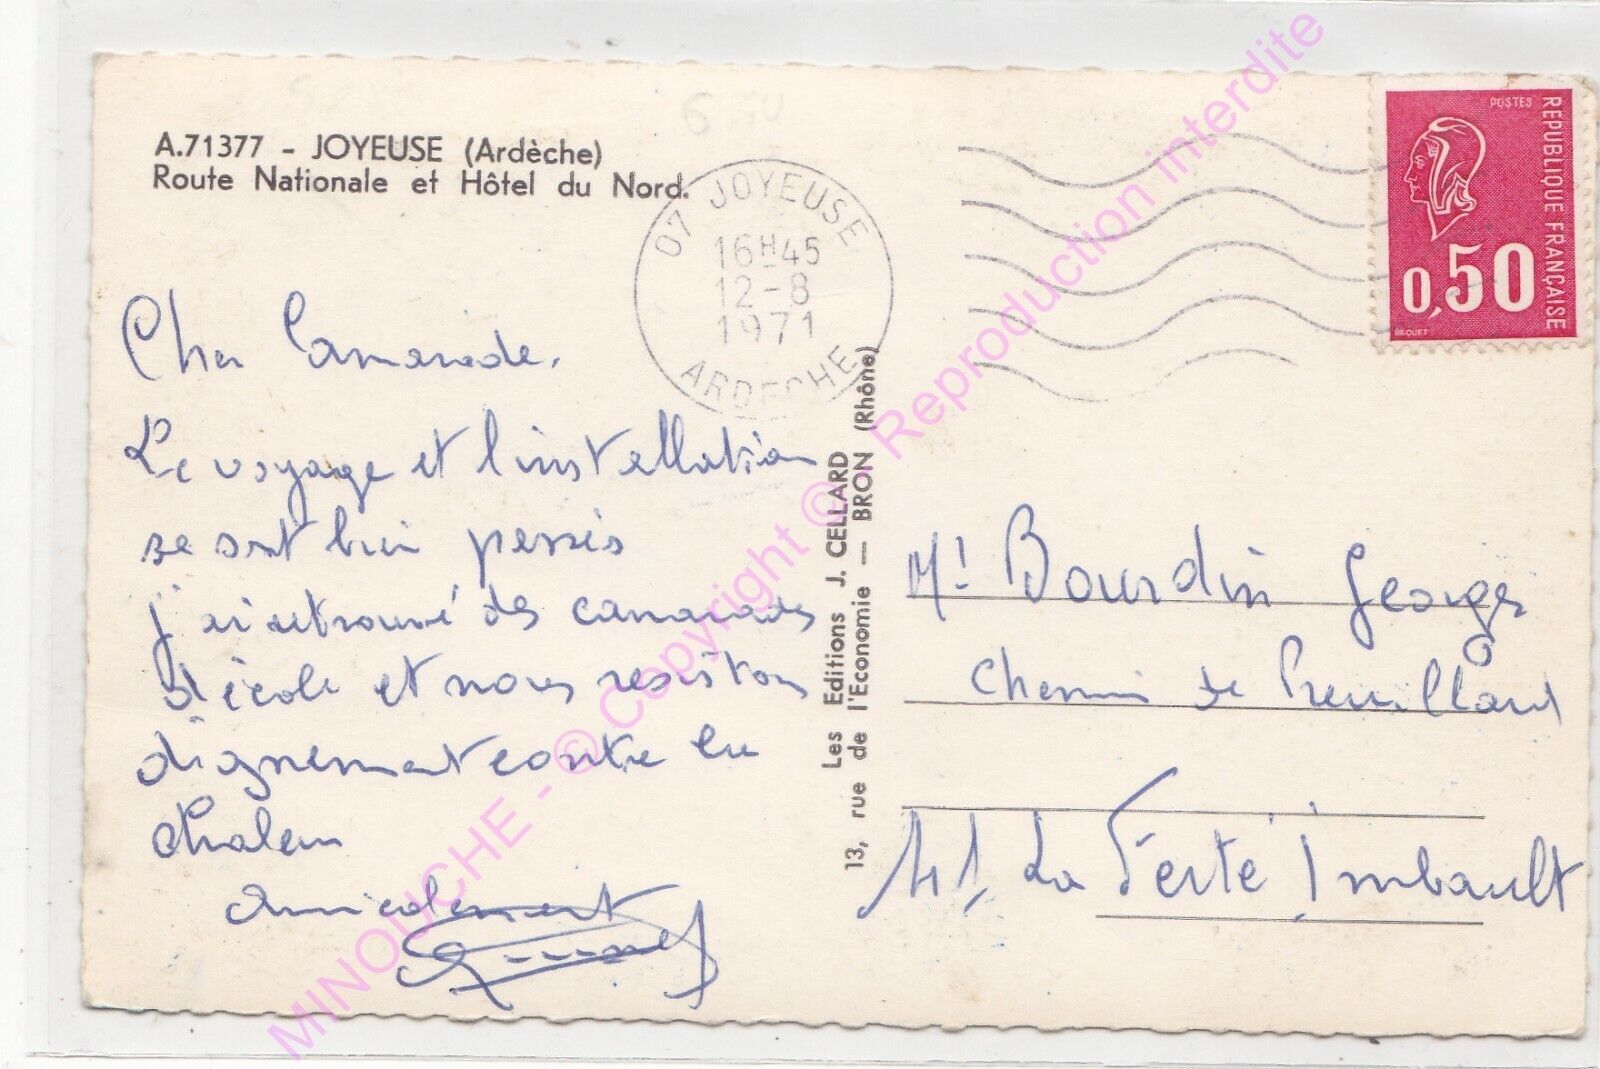 A.71377 - JOYEUSE (Ardèche)
Route Nationale et Hôtel du Nord.
07 JOYEUSE
16H45
12-8
1971
ARDECHE
POSTES
REPUBLIQUE FRANÇAISE
0,50
BEQUET
Cher Camarade.
Le voyage et l'installation
se sont bien passés
j'ai retrouvé des camarades
d'école et nous resistons
dignement contre la
Chaleur
Amicalement
Les Editions J. CELLARD
13, rue de l'Economie — BRON (Rhône)
Mr Bourdin Georges
Chemin de
41 La Ferté Imbault
MINOUCHE - © Copyright © - Reproduction interdite